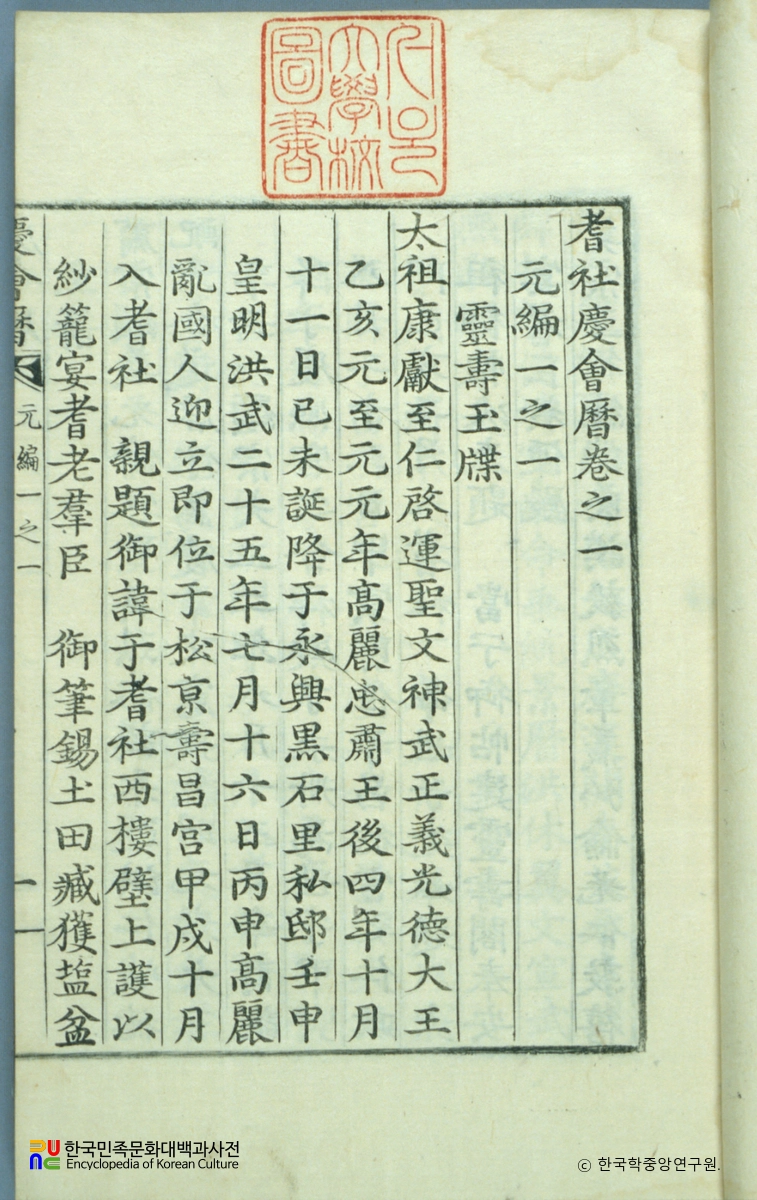 耆社慶會曆卷之一
元編一之一
靈壽玉牒
太祖康獻至仁啓運聖文神武正義光德大王
乙亥元至元元年高麗忠肅王後四年十月
十一日己未誕降于永興黑石里私邸壬申
皇明洪武二十五年七月十六日丙申高麗
亂國人迎立即位于松京壽昌宮甲戌十月
入耆社 親題御諱于耆社西樓壁上護以
紗籠宴耆老羣臣 御筆錫土田臧獲鹽盆
慶會曆 元編一之一 一
文學校
圖書
한국민족문화대백과사전
Encyclopedia of Korean Culture
ⓒ 한국학중앙연구원.